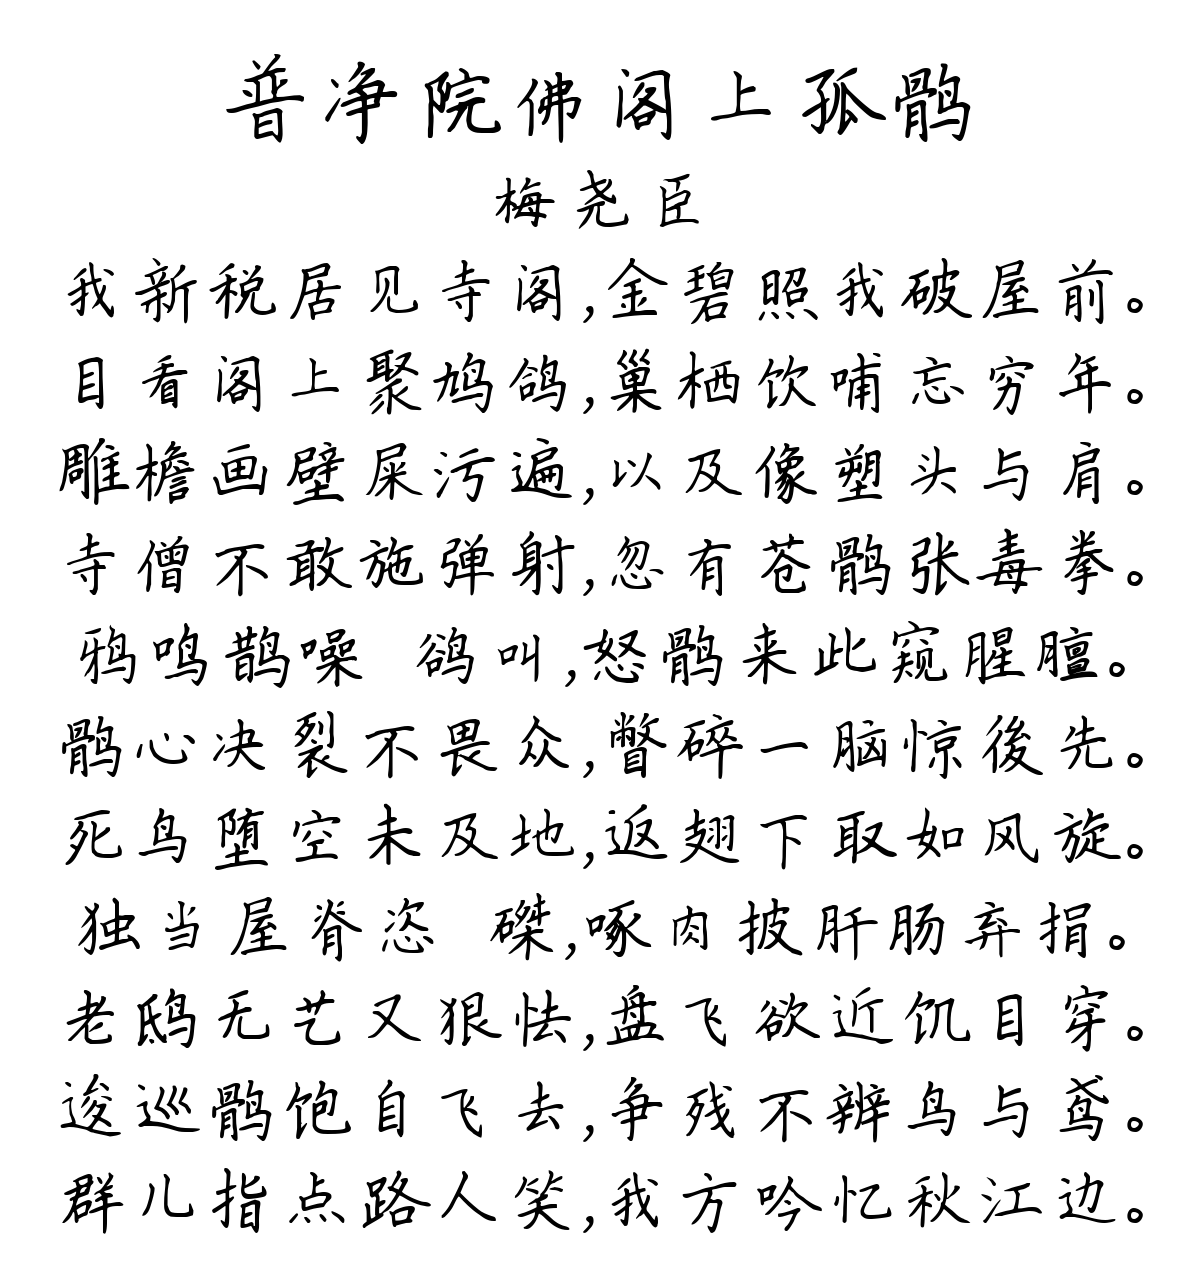 普净院佛阁上孤鹘
梅尧臣
我新税居见寺阁,金碧照我破屋前。
目看阁上聚鸠鸽,巢栖饮哺忘穷年。
雕檐画壁屎污遍,以及像塑头与肩。
寺僧不敢施弹射,忽有苍鹘张毒拳。
鸦鸣鹊噪 鹆叫,怒鹘来此窥腥膻。
鹘心决裂不畏众,瞥碎一脑惊後先。
死鸟堕空未及地,返翅下取如风旋。
独当屋脊恣 磔,啄肉披肝肠弃捐。
老鸱无艺又狠怯,盘飞欲近饥目穿。
逡巡鹘饱自飞去,争残不辨鸟与鸢。
群儿指点路人笑,我方吟忆秋江边。